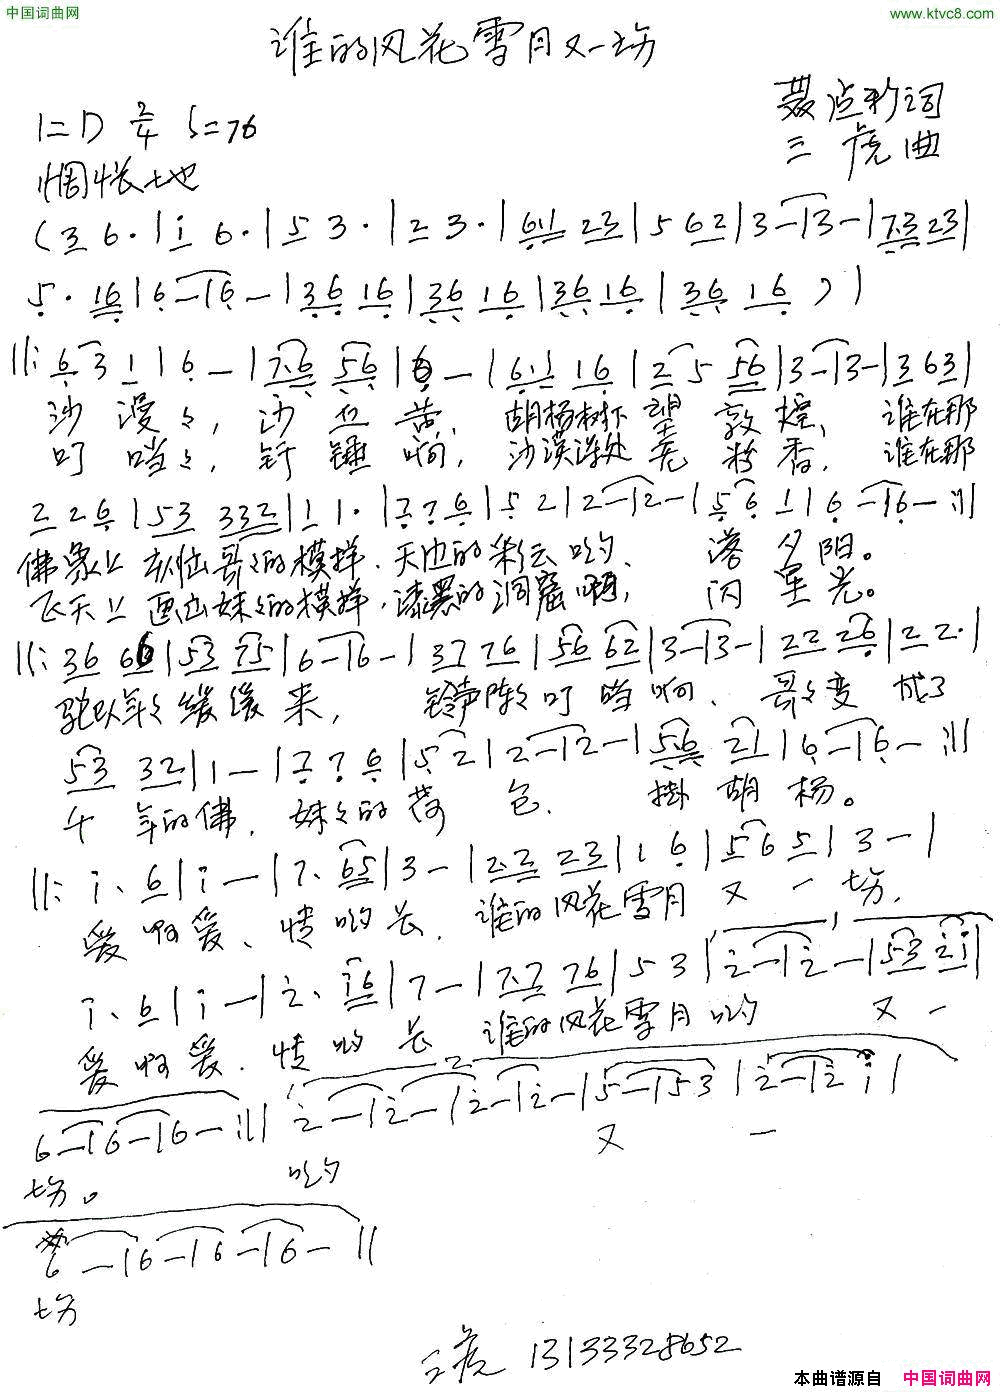 中国词曲网
www.ktvc8.com
谁的风花雪月又一场
1=D 2/4 ♩=76
聂 词
三虎曲
惆怅地
(3 6·|i 6·|5 3·|2 3·|61 23|5 62|3-|3-|7·3 23|
5·16|6-|6-|36 16|36 16|36 16|36 16)|
||:6 3 1|6-|7·6 56|6-|6·1 16|2 5 56|3-|3-|3 63|
沙漫々,沙 苦,胡杨树下望敦煌,谁在那
叮当々,钎锤响,沙漠深处 粉香,谁在那
2 2 6|53 332|1 1·|7 7 6|5 2|2-|2-|5 6 1|6-|6-:||
佛象上 哥々的模样.天边的彩云哟、落夕阳。
飞天上画出妹々的模样,漆黑的洞窟啊,闪星光。
||:36 66|53 75|6-|6-|37 76|56 62|3-|3-|22 26|22·|
驼队年々缓缓来,铃声阵々叮当响、哥々变成了
53 32|1-|7 7 6|5 2|2-|2-|5·6 21|6-|6-:||
千年的佛,妹々的荷包.掛胡杨。
||:i·6|i-|7·65|3-|2·2 23|1 6|5 6 5|3-|
爱啊爱、情哟长.谁的风花雪月又一场,
i·6|i-|2·i6|7-|7·7 76|5 3|2-|2-|53 2i|
爱啊爱.情哟长 谁的风花雪月哟 又一
6-|6-|6-:|| 2-|2-|2-|2-|5-|5 3|2-|2 i|
场。 哟 又 一
6-|6-|6-|6-||
场
三虎 13133328652
本曲谱源自 中国词曲网